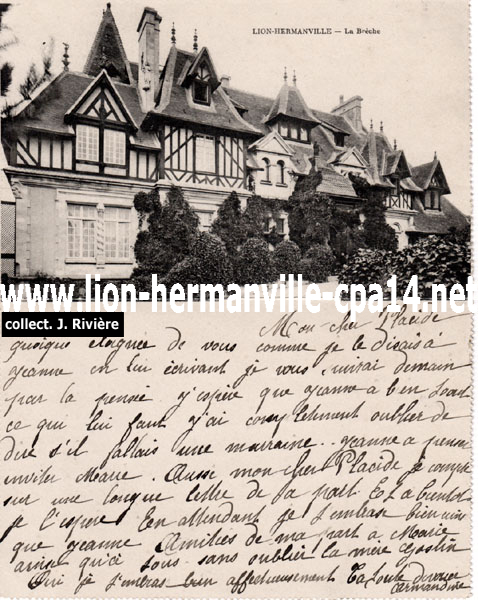 LION-HERMANVILLE — La Brèche
www.lion-hermanville-cpa14.net
collect. J. Rivière
Mon cher Placide
quoique de vous comme je le disais à
en lui écrivant je vous suivrai demain
par la pensée j'espère que a b'en
ce qui lui faut j'ai complètement oublier de
dire s'il fallais une marraine... a pensé
inviter Marie. Aussi mon cher Placide je compte
sur une longue lettre de ta part. Et a bientot
je l'espère. En attendant je t'embrasse bien
que Amitiés de ma part à Marie
ainsi qu'à tous sans oublier la mère
Oui je t'embras bien affectueusement Ta